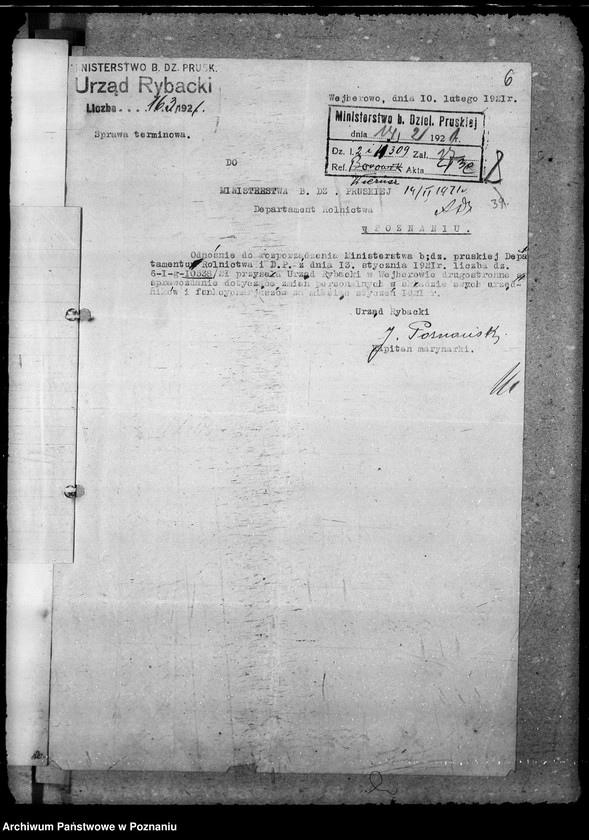 6
MINISTERSTWO B. DZ. PRUSK.
Urząd Rybacki
Liczba . . . 1921.
Wejherowo, dnia 10. lutego 1921r.
Sprawa terminowa.
Ministerstwo b. Dziel. Pruskiej
dnia 14/ 2/ 1921.
Dz. l. 309 Zał.
Ref. Akta
DO
MINISTERSTWA B. DZ. PRUSKIEJ 14/II 1921r
Departament Rolnictwa
39.
w POZNANIU.
Odnośnie do rozporządzenia Ministerstwa b;dz. pruskiej Depar
tamentu Rolnictwa i D.P. z dnia 13. stycznia 1921r. liczba dz.
6-I-g-10338/21 przysyła Urząd Rybacki w Wejherowie drugostronne
sprawozdanie dotyczące zmian personalnych w składzie swych urzęd-
ników i funkcjonarjuszów za miesiąc styczeń 1921 r.
Urząd Rybacki
J. Poznański
Kapitan marynarki.
Archiwum Państwowe w Poznaniu